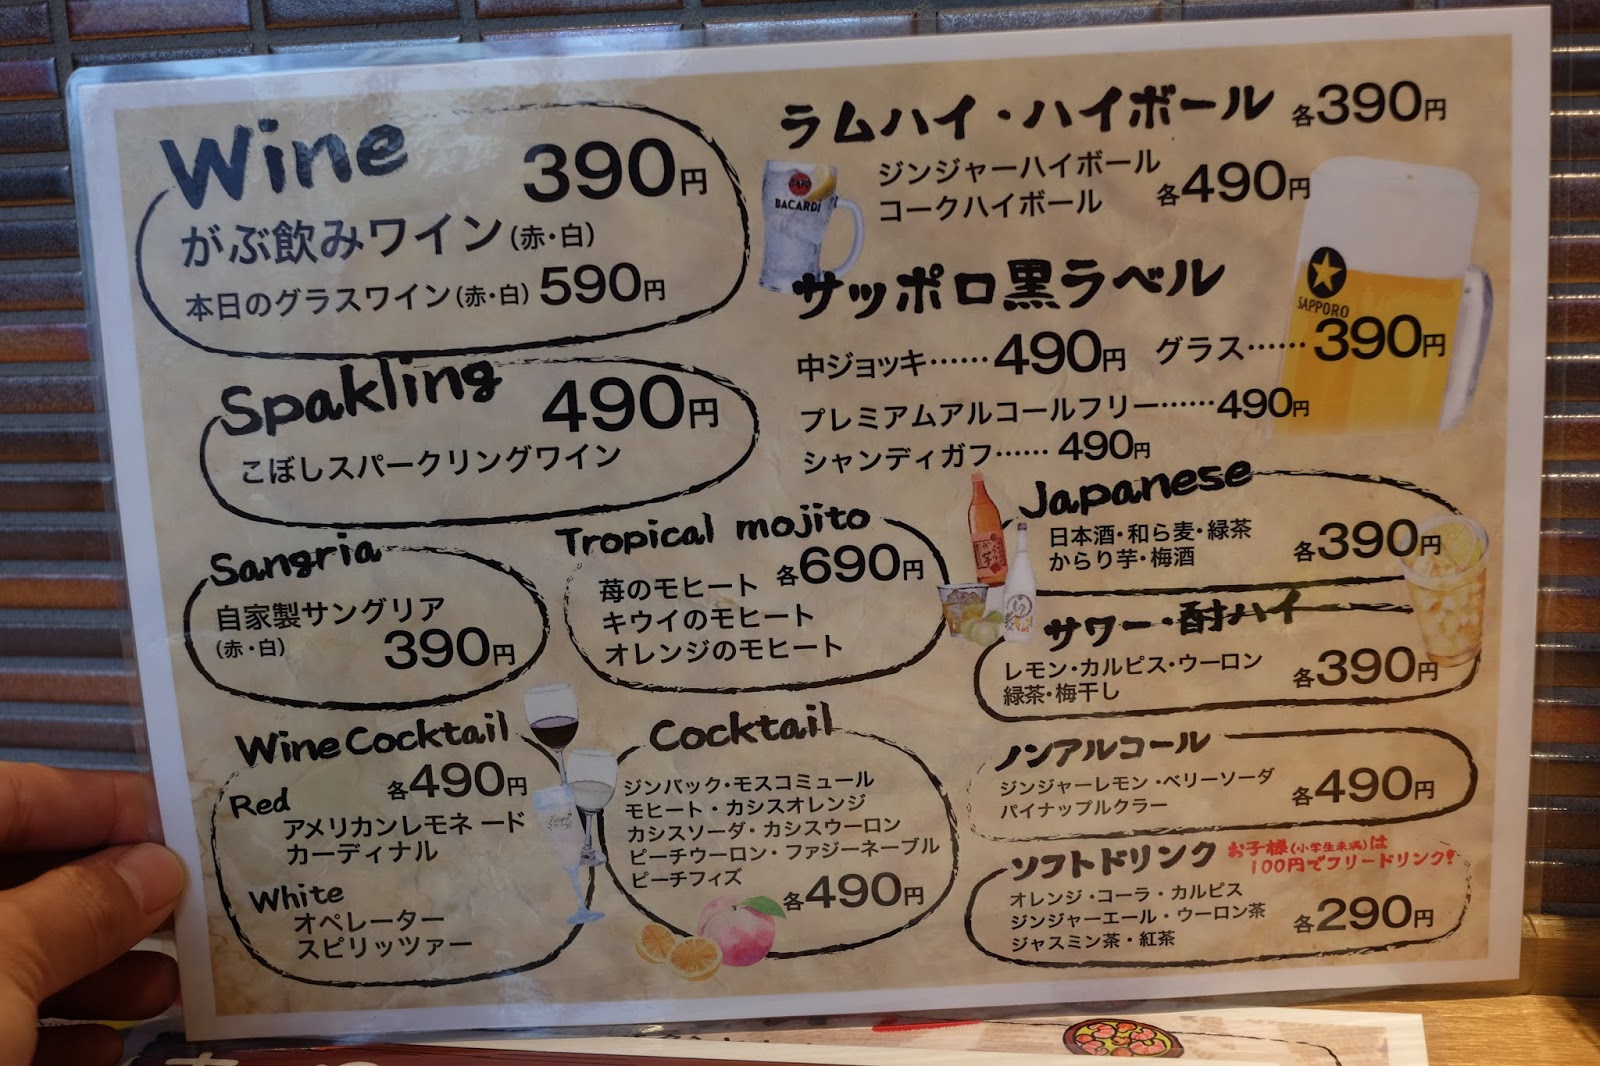 Wine
390円
がぶ飲みワイン(赤・白)
本日のグラスワイン(赤・白) 590円
Spakling
490円
こぼしスパークリングワイン
Sangria
自家製サングリア
(赤・白)
390円
Tropical mojito
各690円
苺のモヒート
キウイのモヒート
オレンジのモヒート
Wine Cocktail
各490円
Red
アメリカンレモネード
カーディナル
White
オペレーター
スピリッツァー
Cocktail
ジンバック・モスコミュール
モヒート・カシスオレンジ
カシスソーダ・カシスウーロン
ピーチウーロン・ファジーネーブル
ピーチフィズ
各490円
ラムハイ・ハイボール 各390円
BACARDI
ジンジャーハイボール
コークハイボール
各490円
サッポロ黒ラベル
SAPPORO
中ジョッキ……490円 グラス……390円
プレミアムアルコールフリー……490円
シャンディガフ……490円
Japanese
日本酒・和ら麦・緑茶
からり芋・梅酒
各390円
サワー・酎ハイ
レモン・カルピス・ウーロン
緑茶・梅干し
各390円
ノンアルコール
ジンジャーレモン・ベリーソーダ
パイナップルクラー
各490円
ソフトドリンク
お子様(小学生未満)は
100円でフリードリンク!
オレンジ・コーラ・カルピス
ジンジャーエール・ウーロン茶
ジャスミン茶・紅茶
各290円